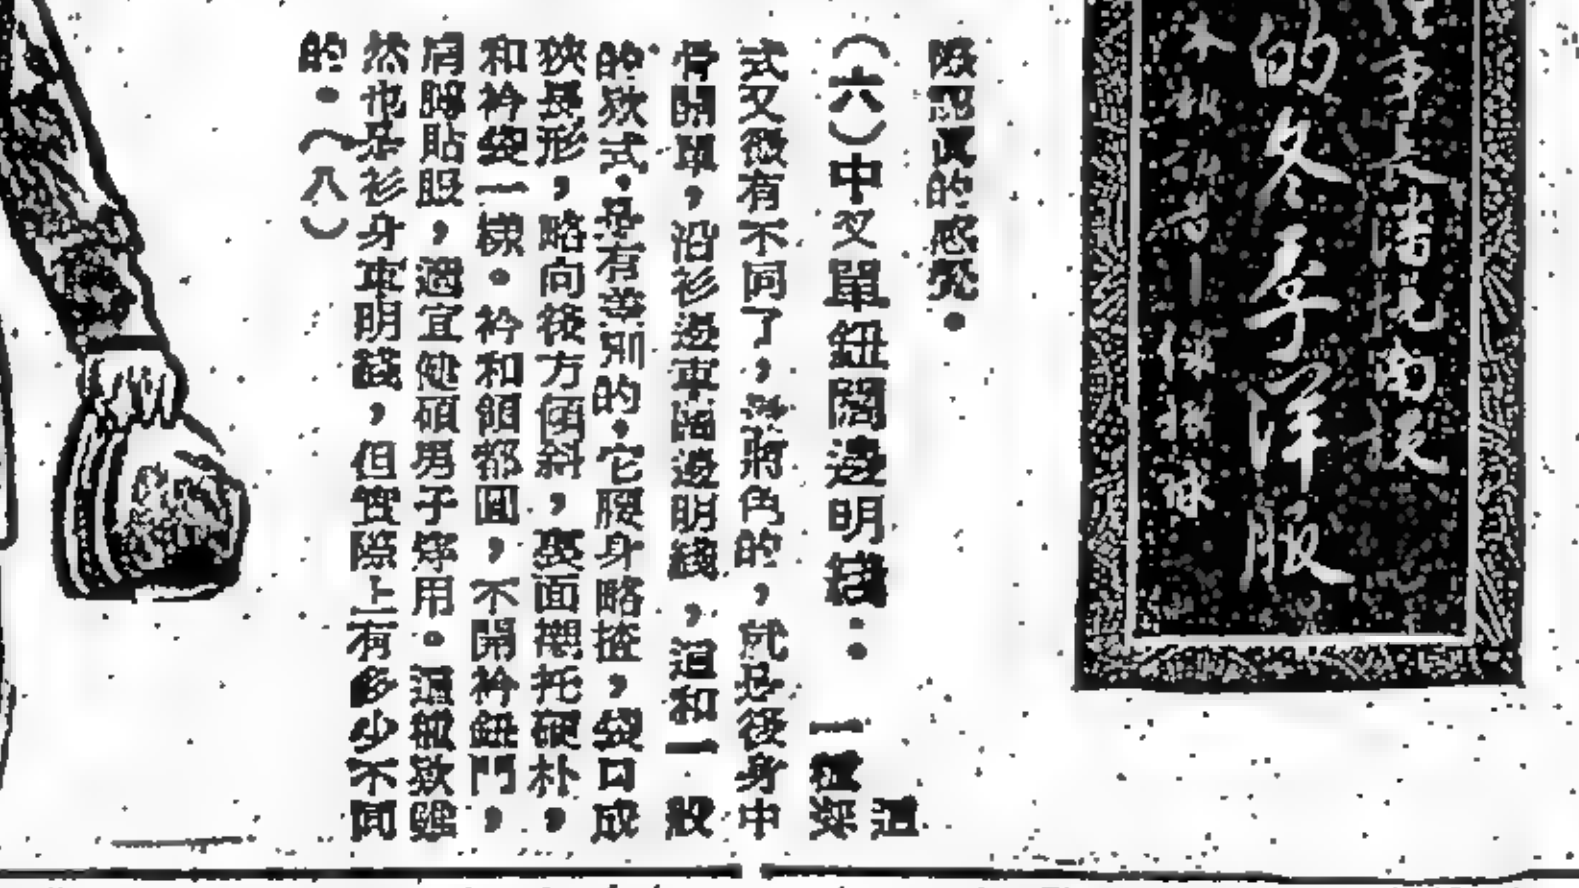 事長
的冬季洋服
本報記者
的感覺。
（六）中叉單鈕闊邊明綫：這一種
式又微有不同了，色的，就是後身中
骨開單，沿衫邊車闊邊明綫，這和一般
的欵式，是有差別的，它腰身略，袋口成
狹長形，略向後方傾斜，裏面襯托硬朴，
和衿袋一樣。衿和領都圓，不開衿鈕門，
肩膊貼服，適宜健碩男子穿用。這種欵雖
然也是衫身車明綫，但實際上有多少不同
的。（八）